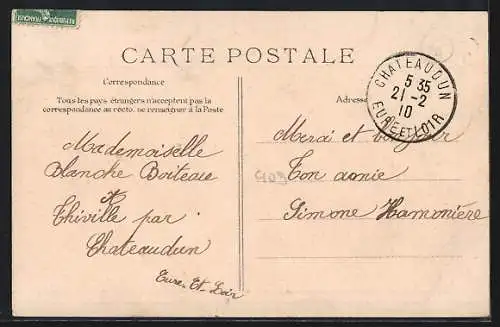 REPUBLIQUE FRANÇAISE
CARTE POSTALE
Correspondance
Tous les pays étrangers n'acceptent pas la
correspondance au recto. se renseigner à la Poste
Mademoiselle
Blanche Boiteau
Thiville par
Chateaudun
Eure-Et-Loir
CHATEAUDUN
5 35
21-2
10
EURE ET LOIR
Adress
Merci et bonjour
Ton amie
Simone Hamonière